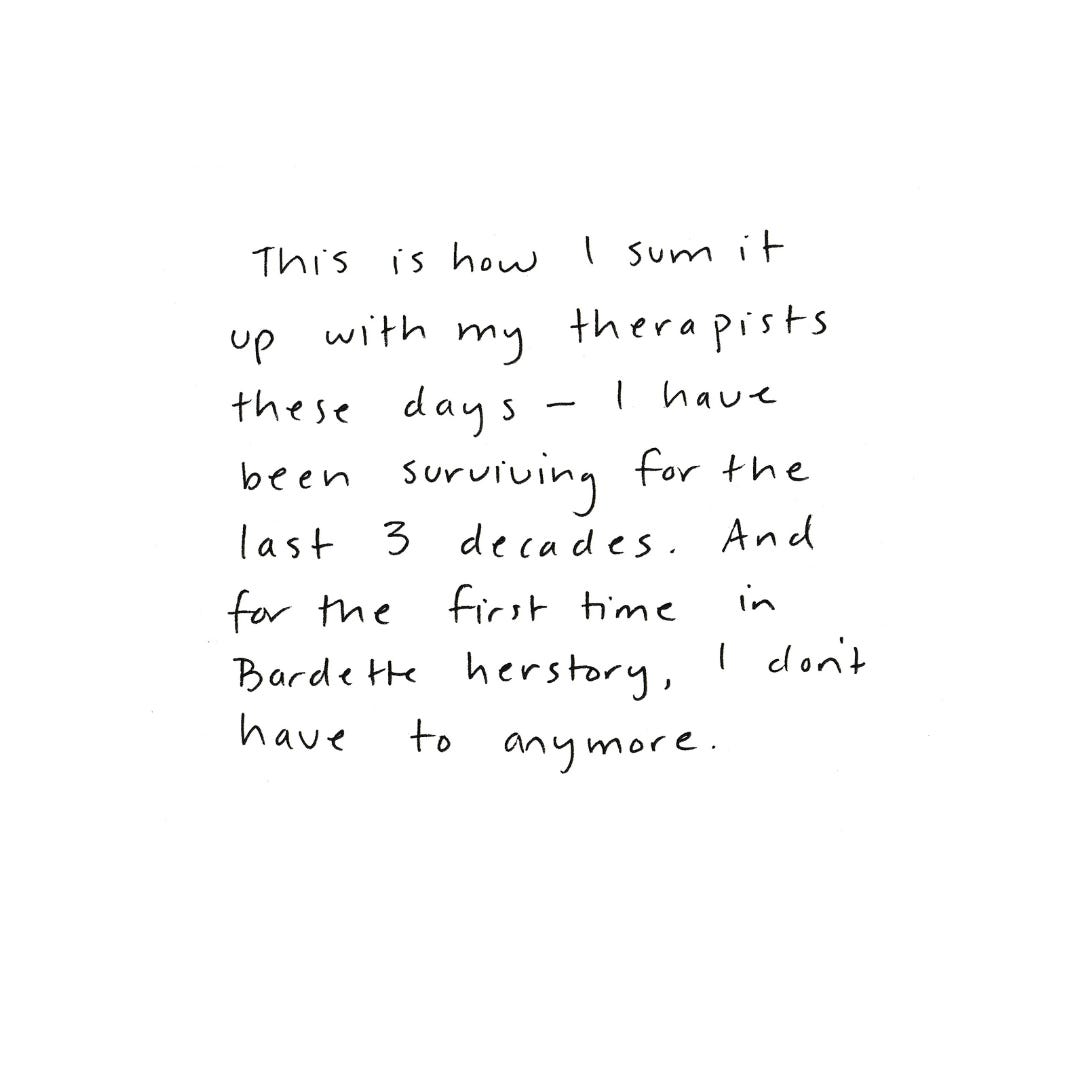 This is how I sum it
up with my therapists
these days — I have
been surviving for the
last 3 decades. And
for the first time in
Bardette herstory, I don't
have to anymore.